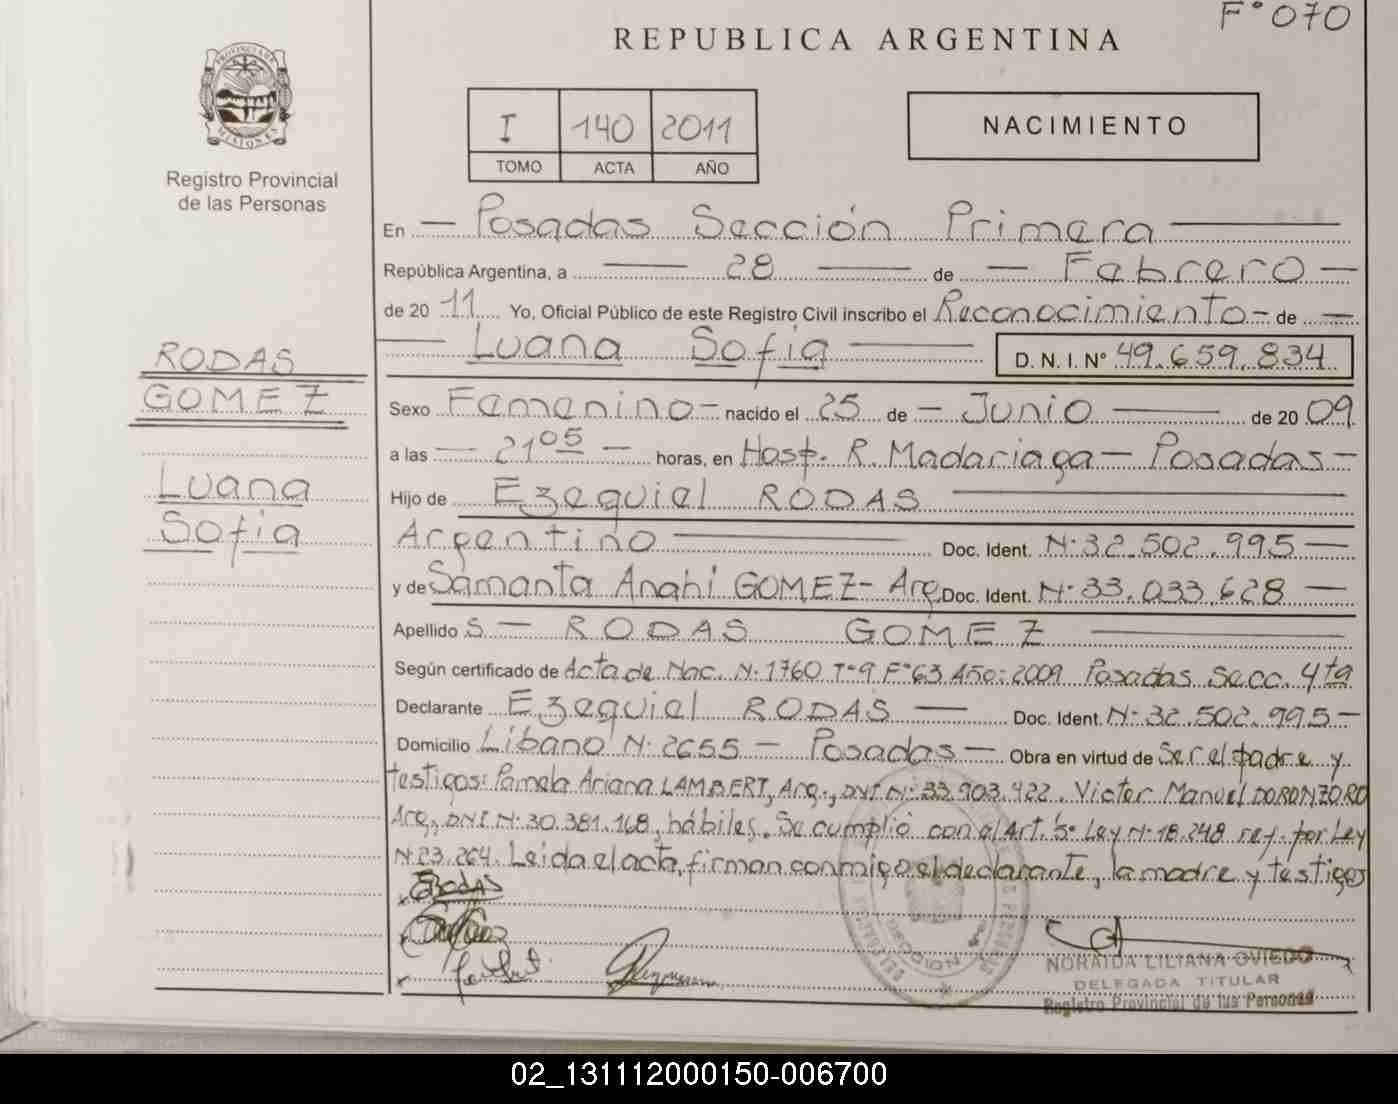 F° 070
REPUBLICA ARGENTINA
PROVINCIA DE
MISIONES
I 140 2011
TOMO ACTA AÑO
NACIMIENTO
Registro Provincial
de las Personas
En — Posadas Sección Primera —
República Argentina, a — 28 — de — Febrero —
de 20 11 Yo, Oficial Público de este Registro Civil inscribo el Reconocimiento - de —
— Luana Sofía — D. N. I. Nº 49.659.834
RODAS
GOMEZ
Luana
Sofia
Sexo Femenino - nacido el 25 de — Junio — de 20 09
a las — 21 05 — horas, en Hosp. R. Madariaga — Posadas —
Hijo de Ezequiel RODAS —
Argentino — Doc. Ident. N· 32.502.995 —
y de Samanta Anahi GOMEZ - Arg. Doc. Ident. N· 33.033.628 —
Apellido s — RODAS GOMEZ —
Según certificado de Acta de Nac. N· 1760 T° 9 F° 63 Año: 2009 Posadas Secc. 4ta
Declarante Ezequiel RODAS — Doc. Ident. N· 32.502.995 —
Domicilio Libano N· 2655 — Posadas — Obra en virtud de Ser el padre y
testigos: Pamela Ariana LAMBERT, Arg., DNI N· 33.903.422. Victor Manuel DORONZORO
Arg., DNI N· 30.381.168, hábiles. Se cumplió con el Art. 5° Ley N· 18.248 ref. por Ley
N· 23.264. Leida el acta, firman conmigo el declarante, la madre y testigos
x ERodas
x
x
NORAIDA LILIANA OVIEDO
DELEGADA TITULAR
Registro Provincial de las Personas
02_131112000150-006700